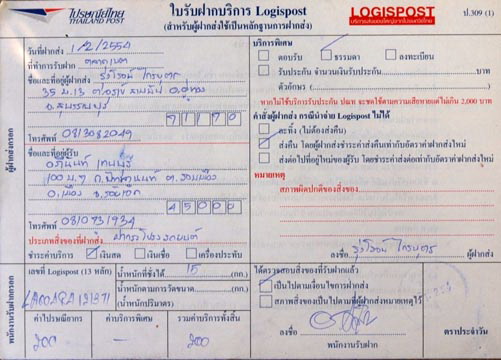 ไปรษณีย์ไทย
THAILAND POST
ใบรับฝากบริการ Logispost
(สำหรับผู้ฝากส่งใช้เป็นหลักฐานการฝากส่ง)
LOGISPOST
ป.309 (1)
ผู้ฝากส่งกรอก
วันที่ฝากส่ง 1/2/2554
ที่ทำการรับฝาก
ชื่อและที่อยู่ผู้ฝากส่ง รุ่งโรจน์ ไกรบุตร
35 ม.13 อ.อู่ทอง
จ.สุพรรณบุรี
71170
โทรศัพท์ 0813082049
ชื่อและที่อยู่ผู้รับ
100 ม.9
อ.เมือง จ.ร้อยเอ็ด
45000
โทรศัพท์ 0810731934
ประเภทสิ่งของที่ฝากส่ง
ชำระค่าบริการ เงินสด เงินเชื่อ เครื่องประทับ
พนักงานรับฝากกรอก
เลขที่ Logispost (13 หลัก)
น้ำหนักที่ชั่งได้ 15 (กก.)
น้ำหนักตามการวัดขนาด (กก.)
(น้ำหนักปริมาตร)
ค่าไปรษณียากร
ค่าบริการพิเศษ
รวมค่าบริการทั้งสิ้น
200
200
บริการพิเศษ
ตอบรับ ธรรมดา ลงทะเบียน
รับประกัน จำนวนเงินรับประกัน บาท
ตัวอักษร ( )
หากไม่ใช้บริการรับประกัน ปณท จะชดใช้ตามความเสียหายแต่ไม่เกิน 2,000 บาท
คำสั่งผู้ฝากส่ง กรณีนำจ่าย Logispost ไม่ได้
ละทิ้ง (ไม่ต้องส่งคืน)
ส่งคืน โดยผู้ฝากส่งชำระค่าส่งคืนเท่ากับอัตราค่าฝากส่งใหม่
ส่งต่อไปที่อยู่ใหม่ของผู้รับ โดยชำระค่าส่งต่อเท่ากับอัตราค่าฝากส่งใหม่
หมายเหตุ
สภาพผิดปกติของสิ่งของ
ลงชื่อ รุ่งโรจน์ ไกรบุตร ผู้ฝากส่ง
ได้ตรวจสอบสิ่งของที่รับฝากแล้ว
เป็นไปตามเงื่อนไขการฝากส่ง
สภาพสิ่งของเป็นไปตามที่ผู้ฝากส่งหมายเหตุไว้
ลงชื่อ
พนักงานรับฝาก
ตราประจำวัน